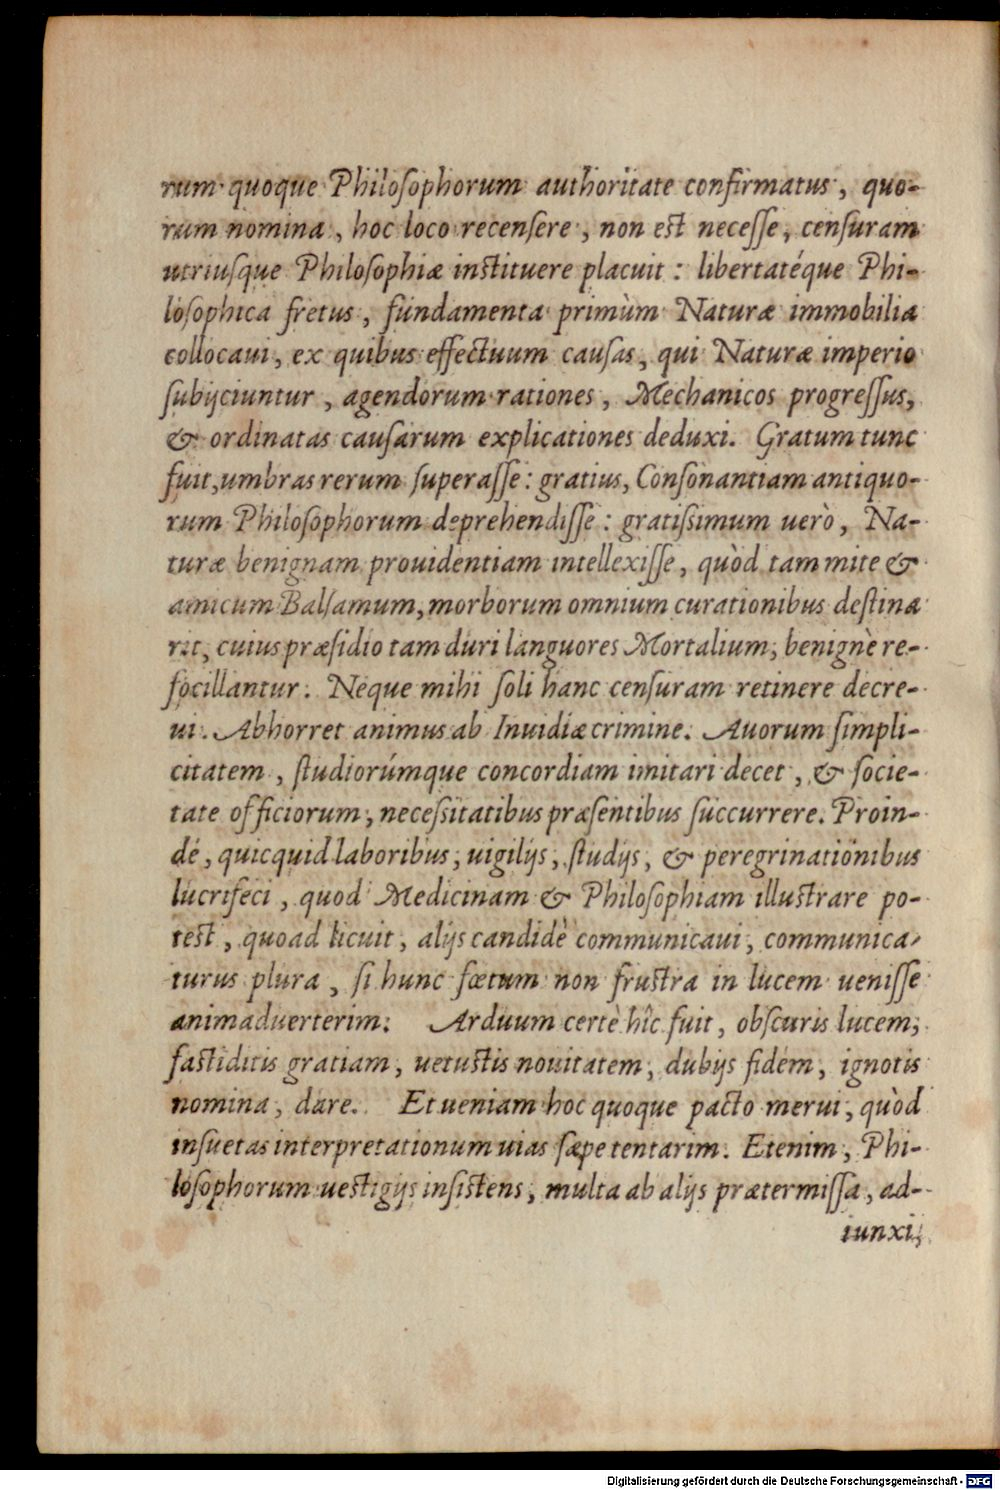 rum quoque Philosophorum authoritate confirmatus, quo-
rum nomina, hoc loco recensere, non est necesse, censuram
utriusque Philosophiæ instituere placuit: libertatéque Phi-
losophica fretus, fundamenta primùm Naturæ immobilia
collocaui, ex quibus effectuum causas, qui Naturæ imperio
subijciuntur, agendorum rationes, Mechanicos progressus,
& ordinatas causarum explicationes deduxi. Gratum tunc
fuit, umbras rerum superasse: gratius, Consonantiam antiquo-
rum Philosophorum deprehendisse: gratissimum uerò, Na-
turæ benignam prouidentiam intellexisse, quòd tam mite &
amicum Balsamum, morborum omnium curationibus destina
rit, cuius præsidio tam duri languores Mortalium, benignè re-
focillantur. Neque mihi soli hanc censuram retinere decre-
ui. Abhorret animus ab Inuidiæ crimine. Auorum simpli-
citatem, studiorúmque concordiam imitari decet, & socie-
tate officiorum, necessitatibus præsentibus succurrere. Proin-
dé, quicquid laboribus, uigilijs, studijs, & peregrinationibus
lucrifeci, quod Medicinam & Philosophiam illustrare po-
test, quoad licuit, alijs candidè communicaui, communica-
turus plura, si hunc fœtum non frustra in lucem uenisse
animaduerterim. Arduum certè hîc fuit, obscuris lucem,
fastiditis gratiam, uetustis nouitatem, dubijs fidem, ignotis
nomina, dare. Et ueniam hoc quoque pacto merui, quòd
insuetas interpretationum uias sæpe tentarim. Etenim, Phi-
losophorum uestigijs insistens, multa ab alijs prætermissa, ad-
iunxi,
Digitalisierung gefördert durch die Deutsche Forschungsgemeinschaft - DFG